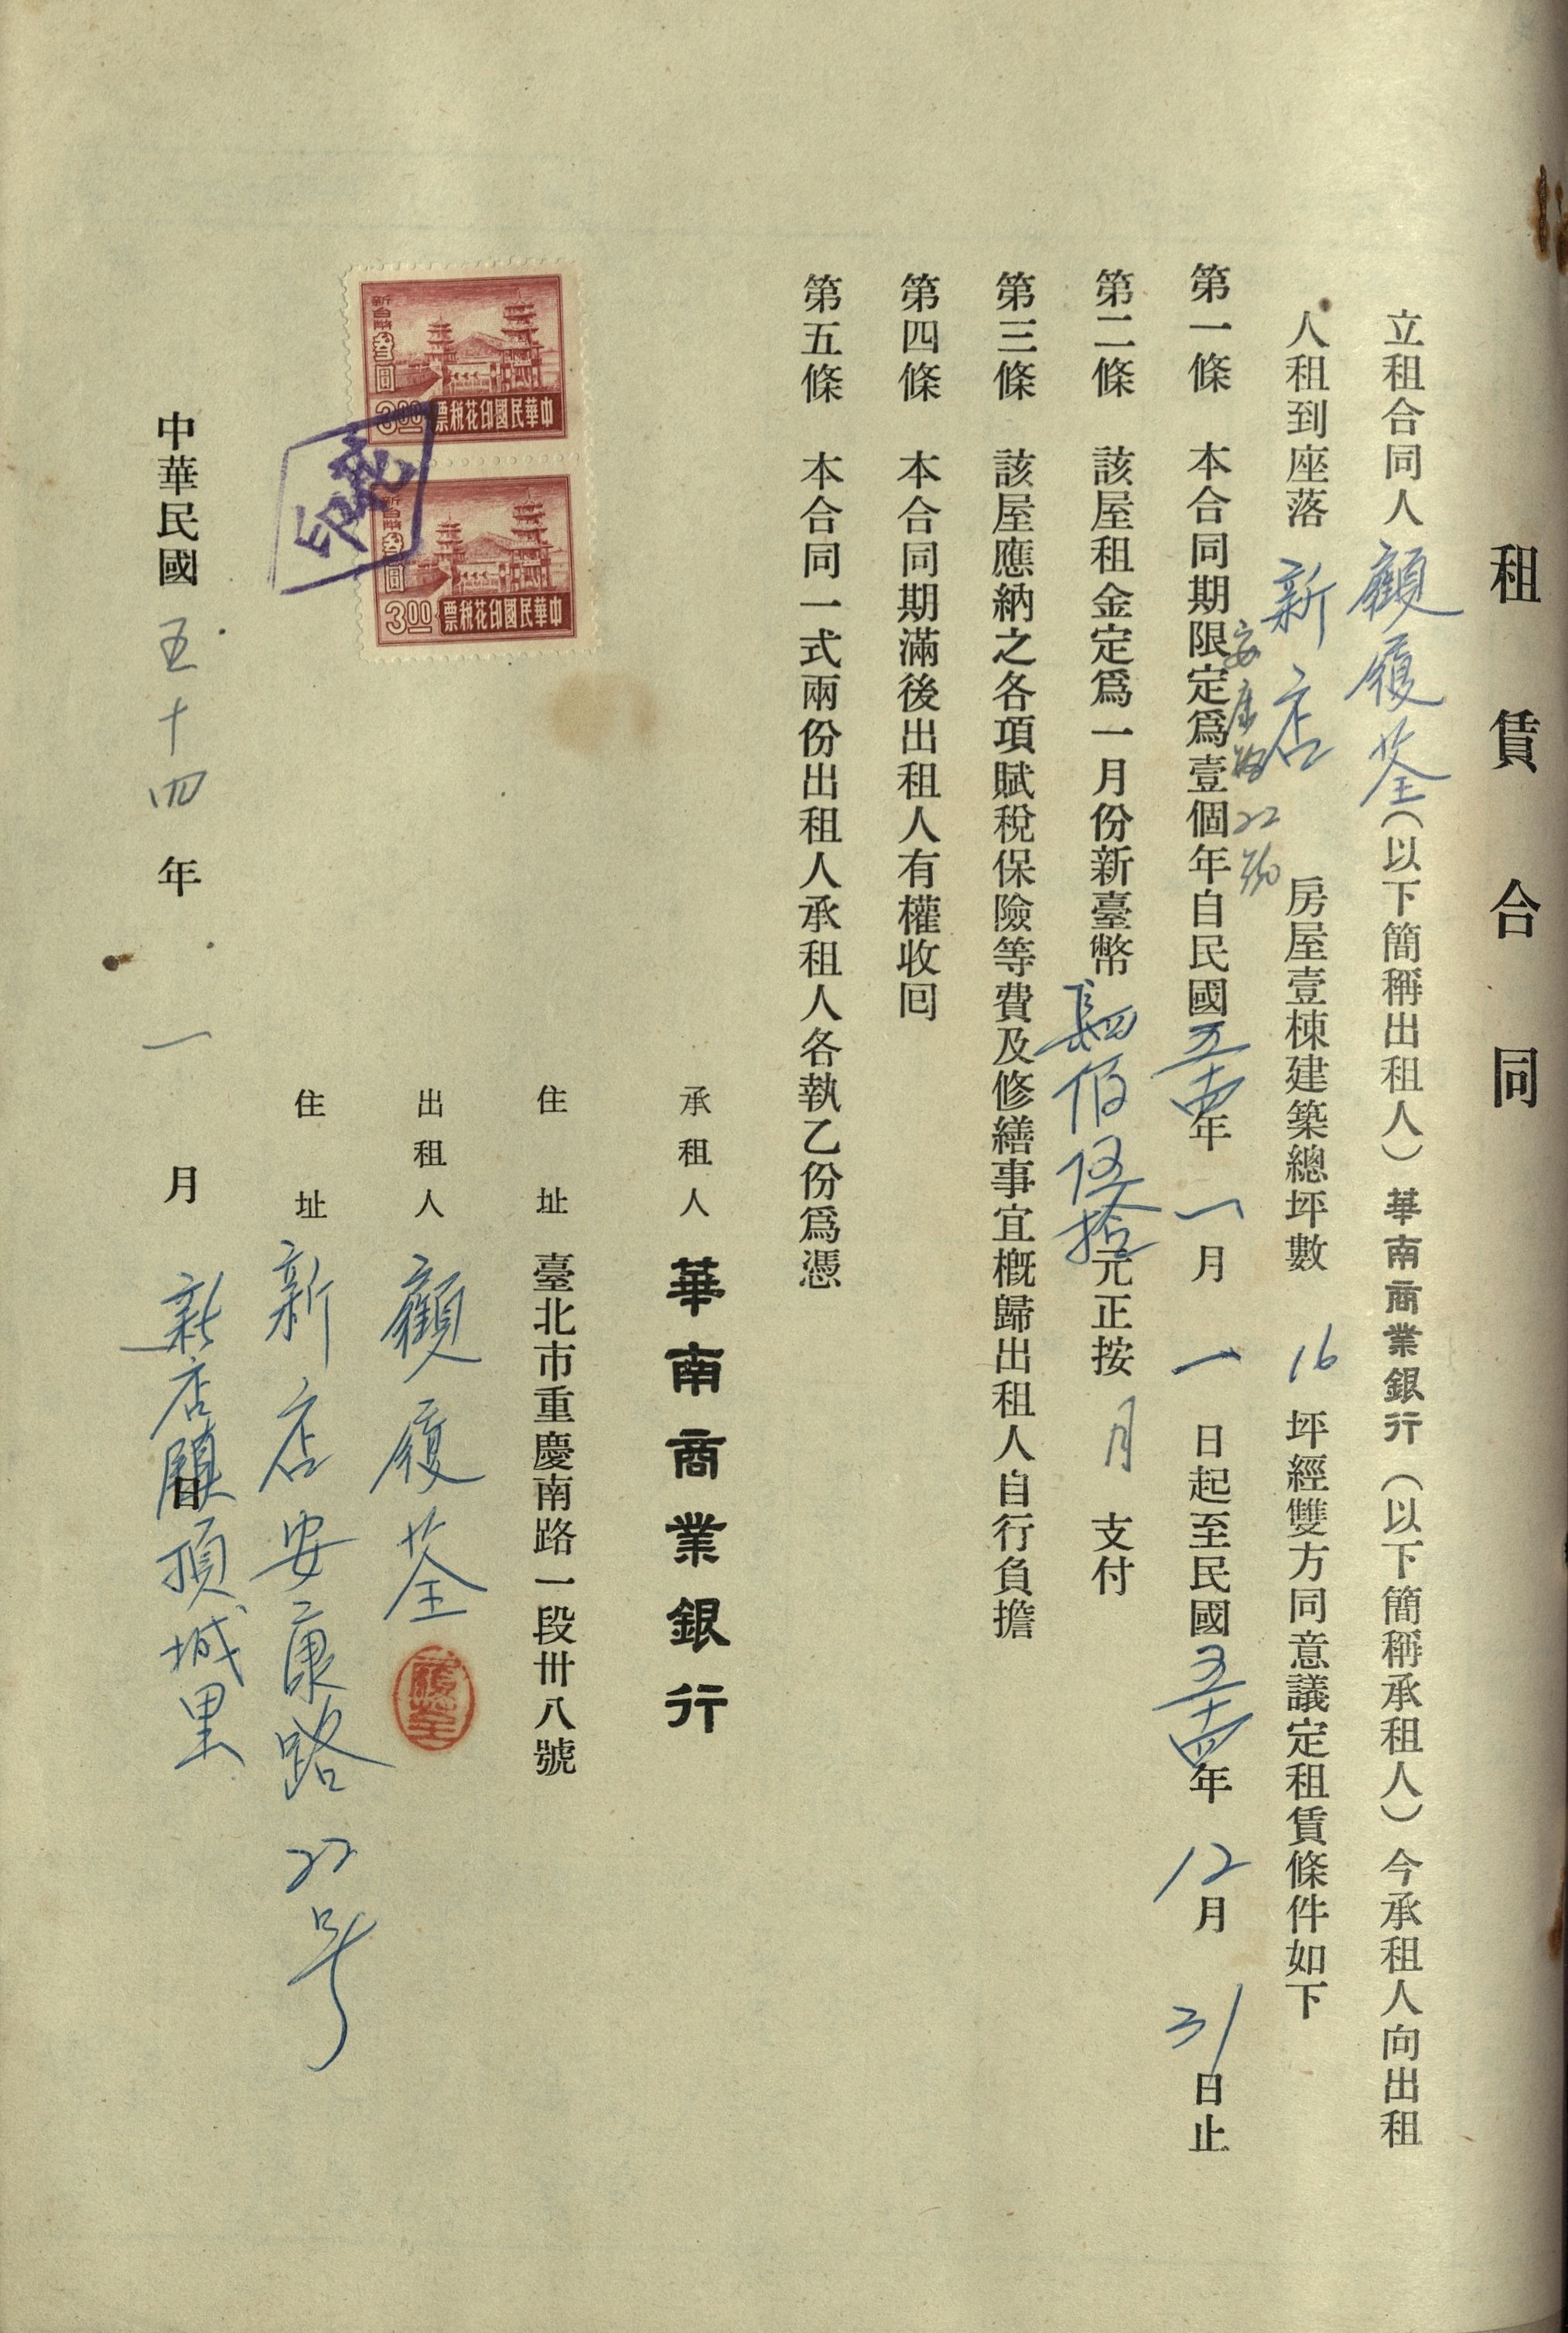 租賃合同
立租合同人顧履荃（以下簡稱出租人）華南商業銀行（以下簡稱承租人）今承租人向出租
人租到座落新店安康路22號房屋壹棟建築總坪數16坪經雙方同意議定租賃條件如下
第一條 本合同期限定爲壹個年自民國五十四年一月一日起至民國五十四年12月31日止
第二條 該屋租金定爲一月份新臺幣肆佰伍拾元正按月支付
第三條 該屋應納之各項賦稅保險等費及修繕事宜概歸出租人自行負擔
第四條 本合同期滿後出租人有權收回
第五條 本合同一式兩份出租人承租人各執乙份爲憑
承租人 華南商業銀行
住址 臺北市重慶南路一段卅八號
出租人 顧履荃
住址 新店安康路22号
新店鎮頂城里
中華民國五十四年一月日
新台幣叁圓
3.00
中華民國印花稅票
新台幣叁圓
3.00
中華民國印花稅票